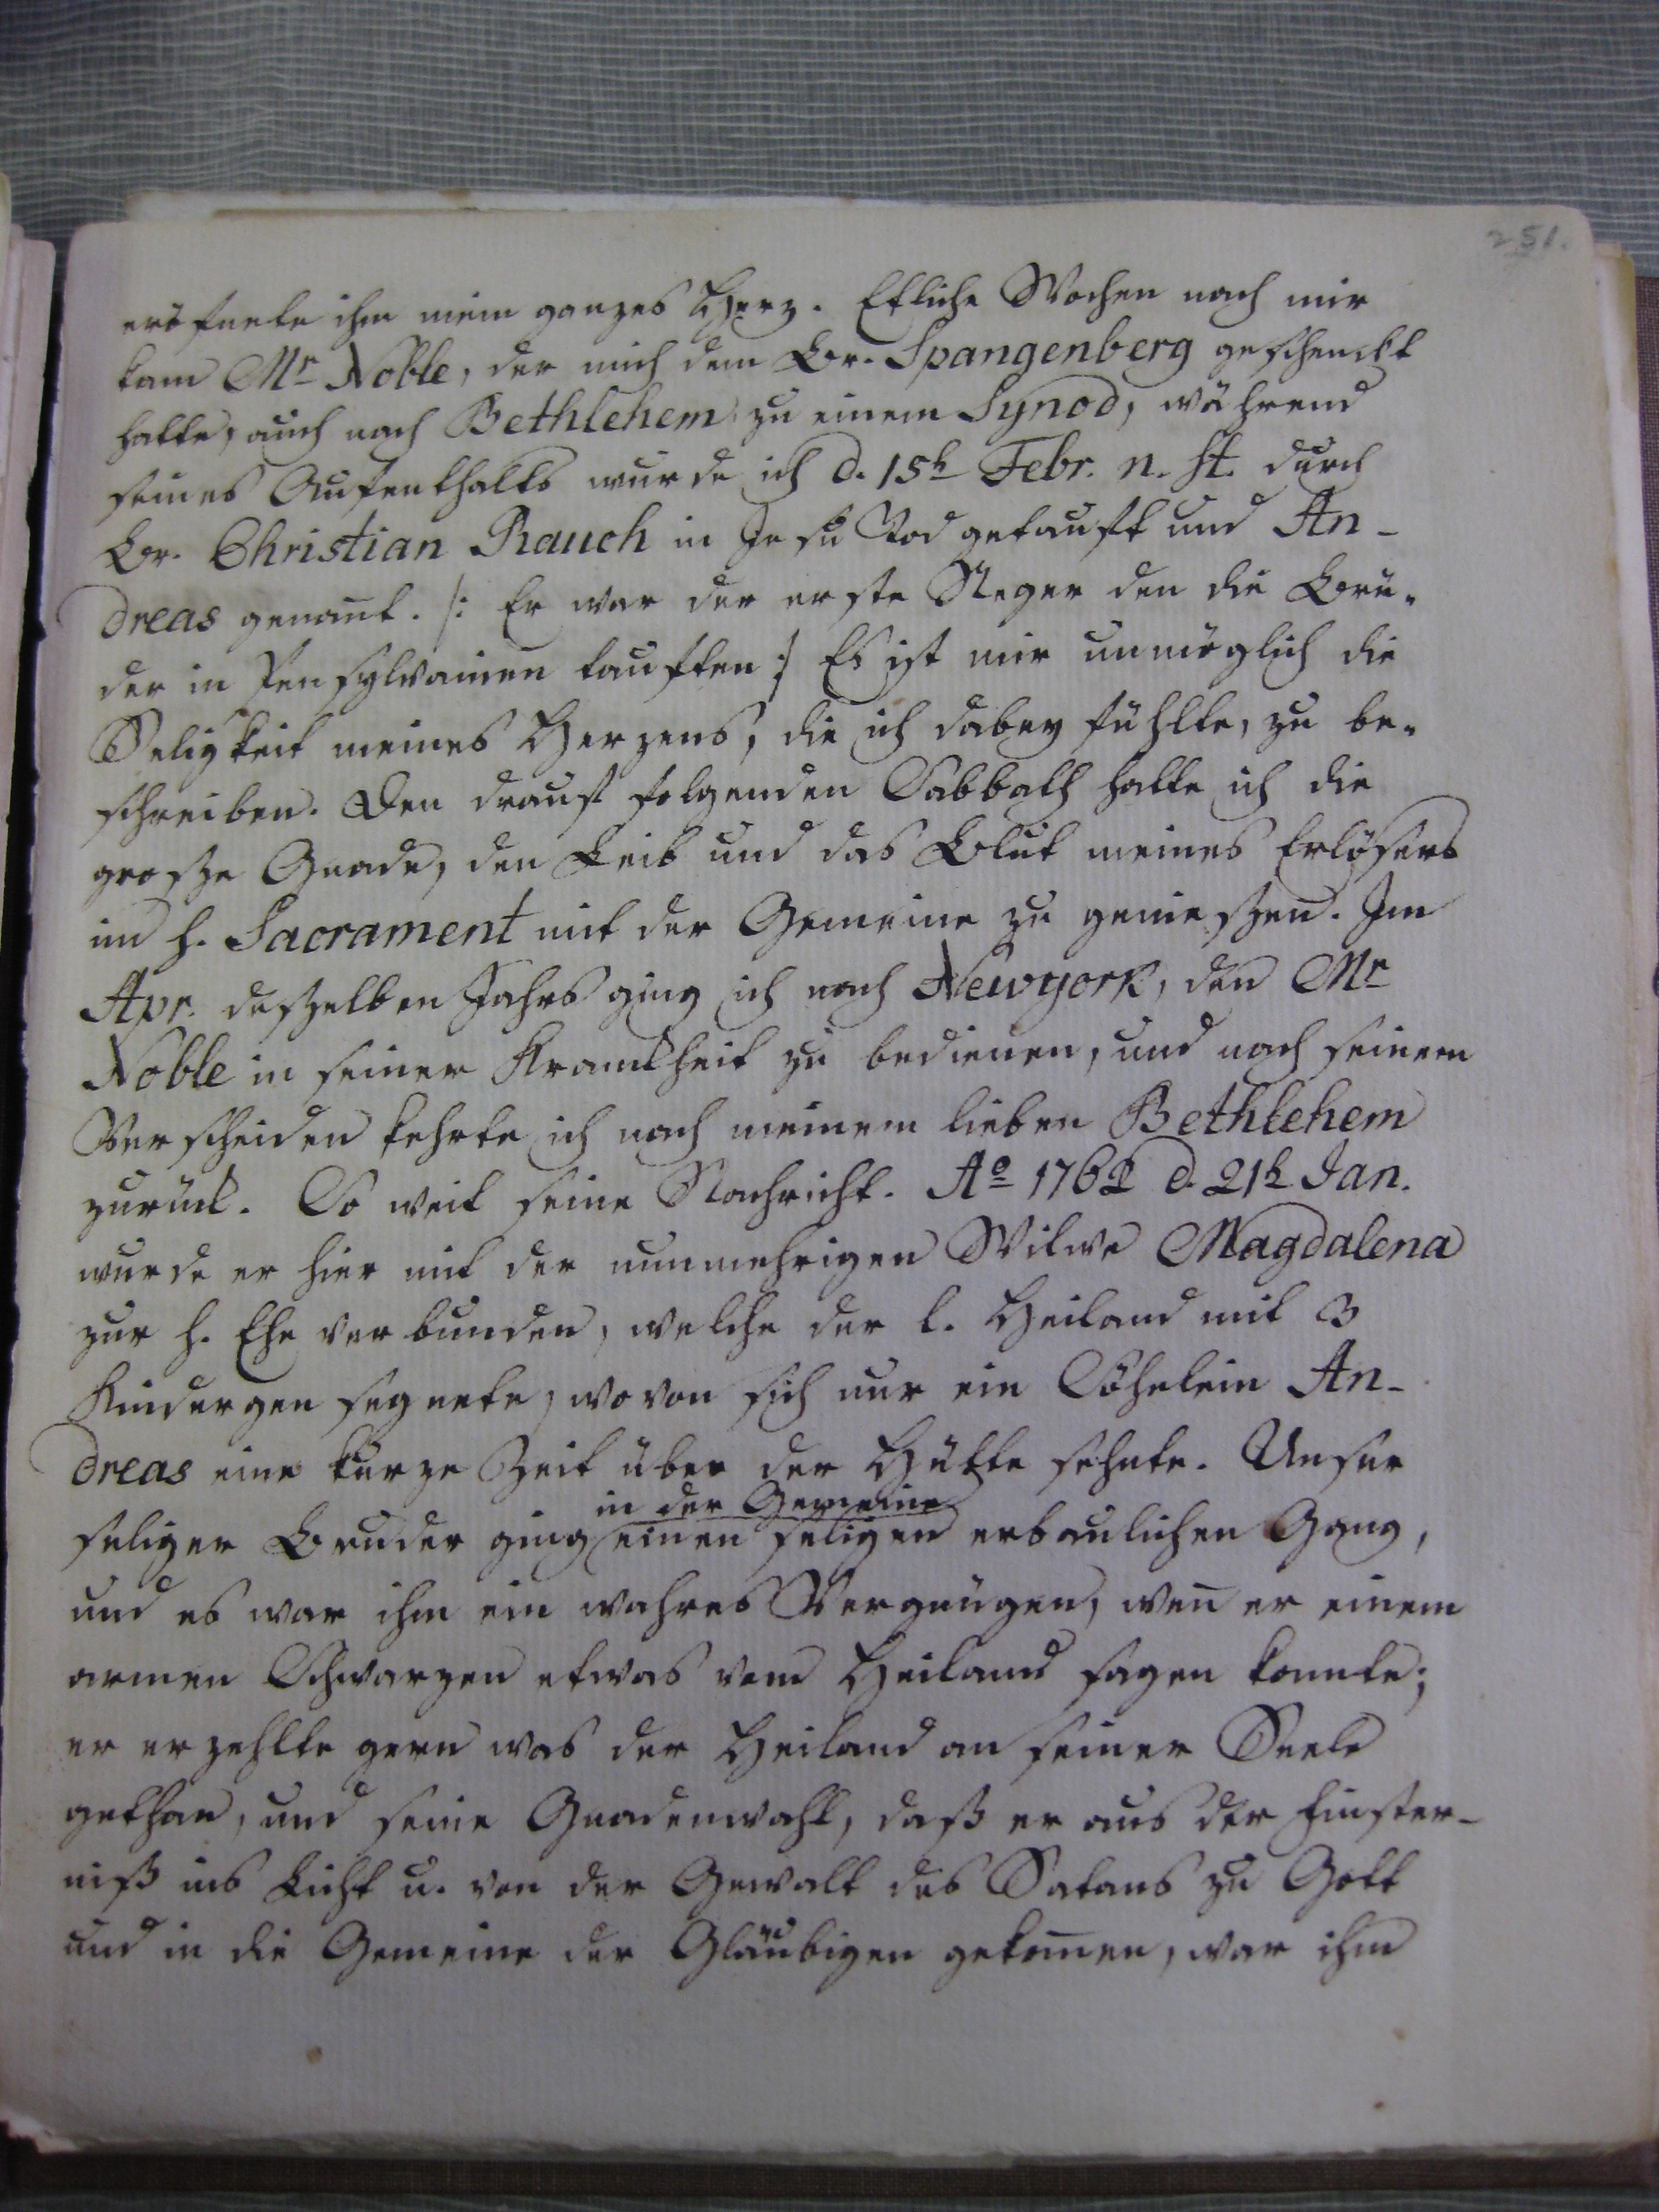 251.
eröfnete ihm mein ganzes Herz. Etliche Wochen nach mir
kam Mr Noble, der mich dem Br. Spangenberg geschenckt
hatte, auch nach Bethlehem zu einem Synod, während
seines Aufenthalts wurde ich d. 15t Febr. n. st. durch
Br. Christian Rauch in Jesu Tod getauft und An-
dreas genañt. /: Er war der erste Neger den die Brü-
der in Pensylvanien tauften :/ Es ist mir unmöglich die
Seligkeit meines Herzens, die ich dabey fühlte, zu be-
schreiben. Den drauf folgenden Sabbath hatte ich die
grosze Gnade, den Leib und das Blut meines Erlösers
im h. Sacrament mit der Gemeine zu genieszen. Im
Apr. deszelben Jahrs ging ich nach Newyork, den Mr
Noble in seiner Kranckheit zu bedienen, und nach seinem
Verscheiden kehrte ich nach meinem lieben Bethlehem
zurück. So weit seine Nachricht. Ao 1762 d. 21t Jan.
wurde er hier mit der nunmehrigen Witwe Magdalena
zur h. Ehe verbunden, welche der l. Heiland mit 3
Kindergen segnete, wovon sich nur ein Söhnlein An-
dreas eine kurze Zeit über der Hütte sehnte. Unser
in der Gemeine
seliger Bruder ging einen seligen erbaulichen Gang,
und es war ihm ein wahres Vergnügen, weñ er einem
armen Schwarzen etwas vom Heiland sagen konnte;
er erzehlte gern was der Heiland an seiner Seele
gethan, und seine Gnadenwahl, daß er aus der Finster-
niß ins Licht u. von der Gewalt des Satans zu Gott
und in die Gemeine der Gläubigen gekom̃en, war ihm